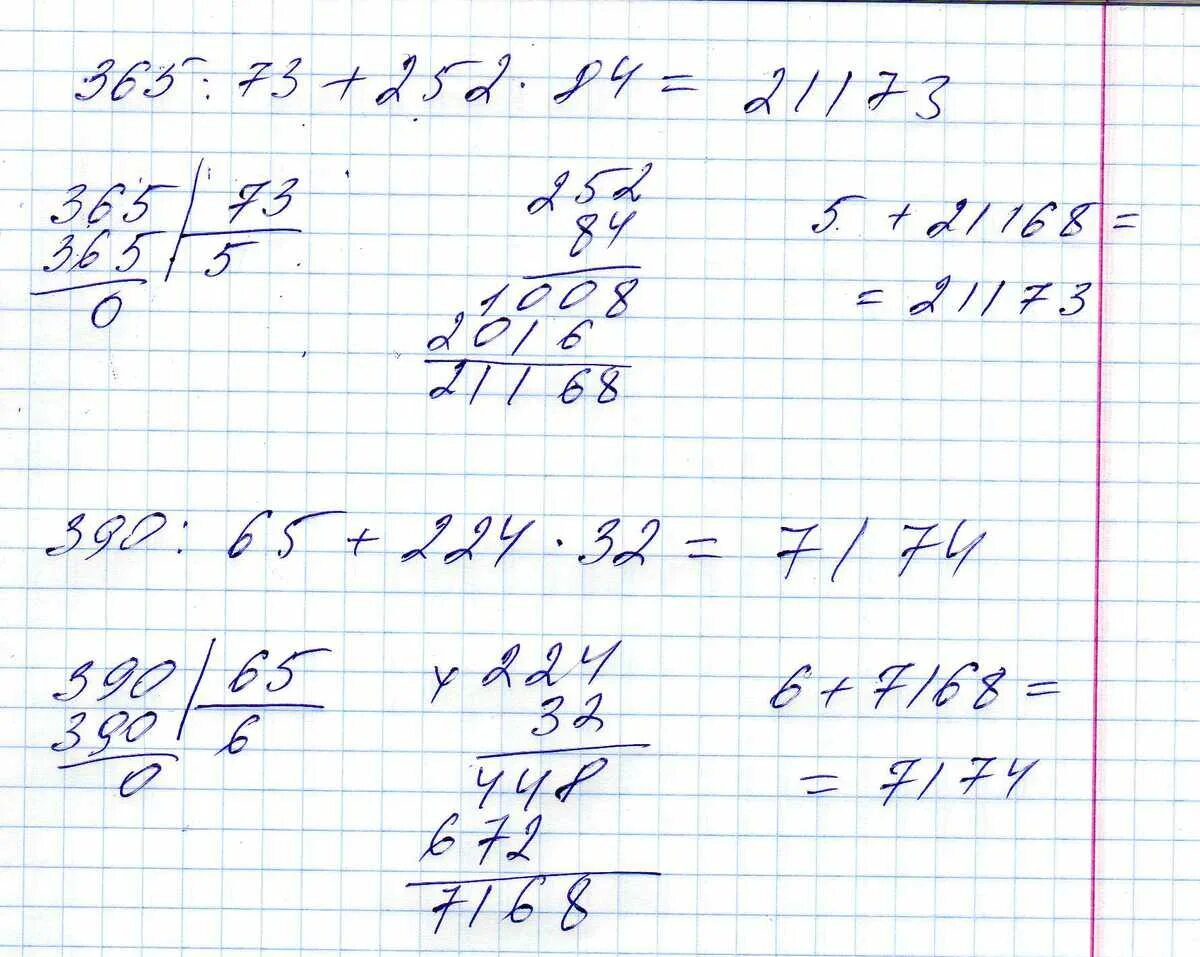 365 : 73 + 252 · 84 = 21173
365 | 73
365 | 5
0
252
84
1008
2016
21168
5 + 21168 =
= 21173
390 : 65 + 224 · 32 = 7174
390 | 65
390 | 6
0
× 224
32
448
672
7168
6 + 7168 =
= 7174